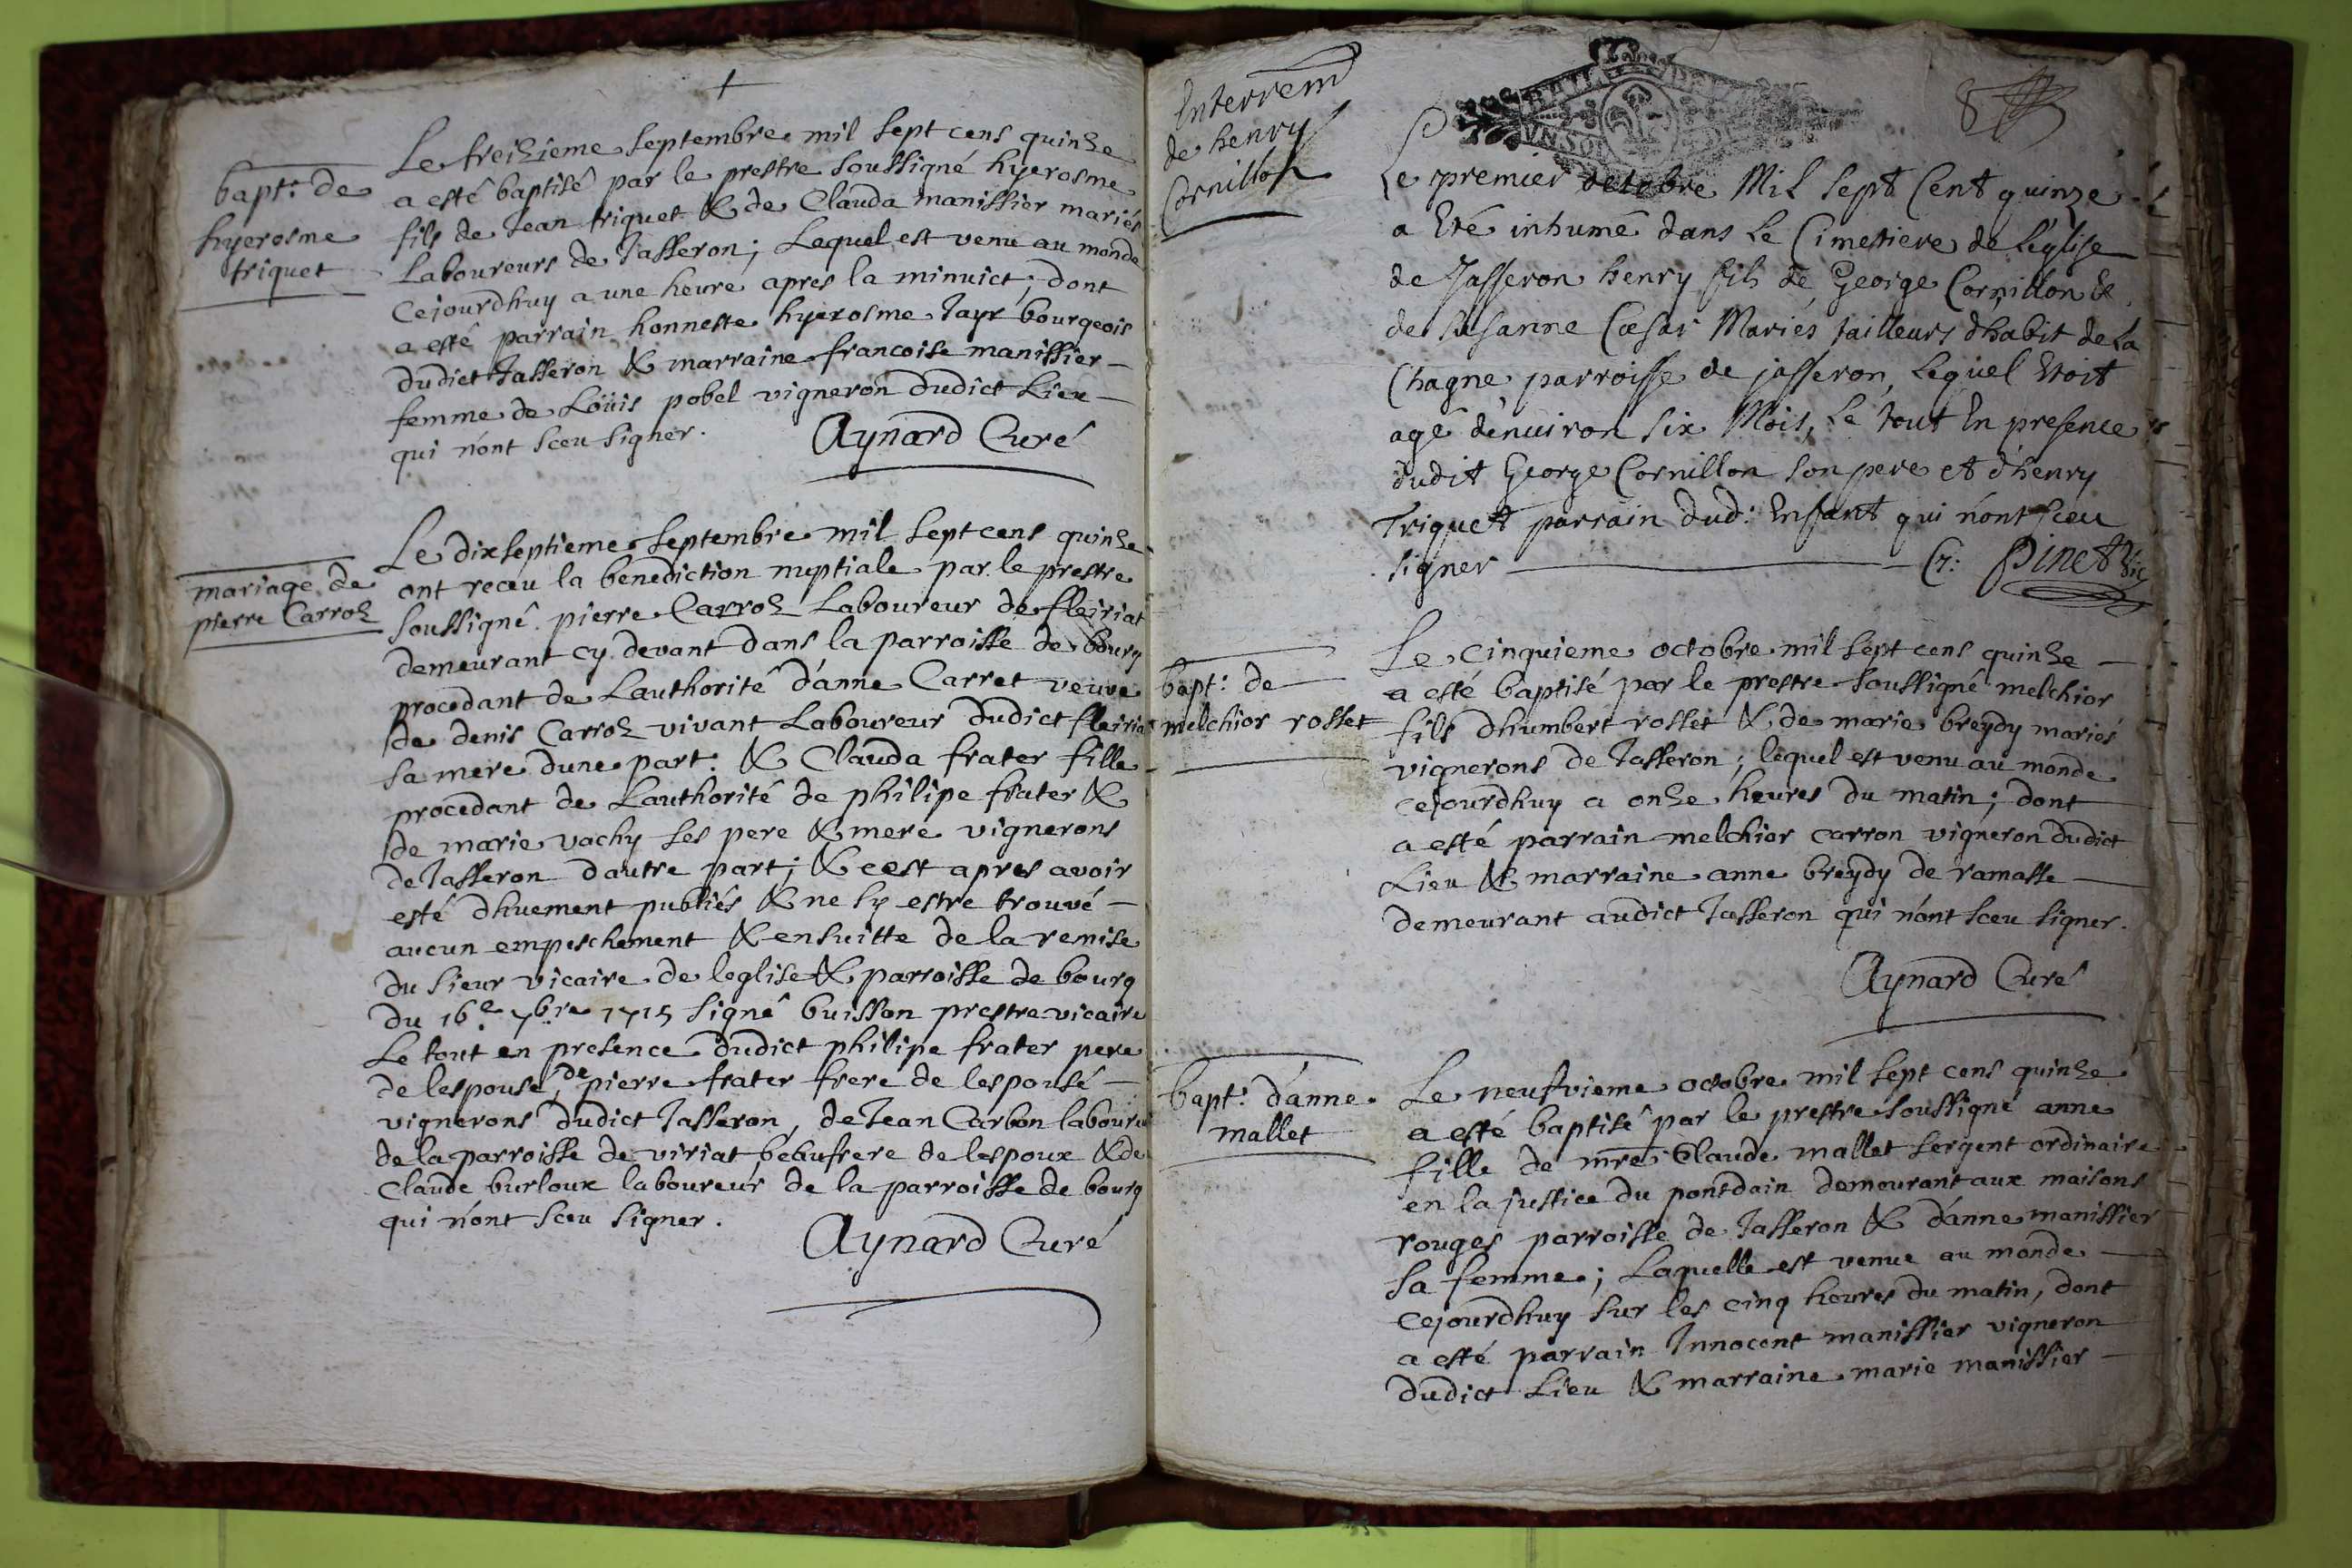 bapt: de
hyerosme
triquet
Le treizieme septembre mil sept cens quinze
a esté baptisé par le prestre soussigné hyerosme
fils de Jean triquet & de Clauda manissier mariés
Laboureurs de Jasseron; Lequel est venu au monde
cejourdhuy a une heure apres la minuict; dont
a esté parrain honneste hyerosme Jayr bourgeois
dudict Jasseron & marraine francoise manissier
femme de Loüis pobel vigneron dudict Lieu
qui n'ont sceu signer.
Aynard Curé
mariage de
pierre Carroz
Le dixseptieme septembre mil sept cens quinze
ont receu la benediction nuptiale par le prestre
soussigné pierre Carroz Laboureur de fleiriat
demeurant cy devant dans la parroisse de bourg
procedant de Lauthorité d'anne Carret veuve
de denis Carroz vivant Laboureur dudict fleiria
sa mere dune part. & Clauda frater fille
procedant de Lauthorité de philipe frater &
de marie vachy ses pere & mere vignerons
de Jasseron dautre part; & cest apres avoir
esté dhuement publiés & ne sy estre trouvé
aucun empeschement & ensuitte de la remise
du sieur vicaire de leglise & parroisse de bourg
du 16e 7bre 1715 signé buisson prestre vicaire
Le tout en presence dudict philipe frater pere
de lespouse, de pierre frater frere de lespousé
vignerons dudict Jasseron, de Jean Carbon laboure
de la parroisse de viriat beaufrere de lespoux & de
Claude burloux laboureur de la parroisse de bourg
qui n'ont sceu signer.
Aynard Curé
8
Enterrem
de henry
Cornillon
Le premier octobre Mil sept Cent quinze
a Eté inhumé dans Le Cimetiere de L'eglise
de Jasseron henry fils de George Cornillon &
de susanne Cæsar Mariés tailleurs d'habit de La
Chagne parroisse de jasseron, Lequel Etoit
agé d'enuiron six Mois, Le tout En presence
dudit George Cornillon son pere et d'henry
Triquet parrain dud: Enfant qui n'ont sceu
signer Pinet Vic
bapt: de
melchior rosset
Le cinquieme octobre mil sept cens quinze
a esté baptisé par le prestre soussigné melchior
fils dhumbert rosset & de marie breydy mariés
vignerons de Jasseron; lequel est venu au monde
cejourdhuy a onze heures du matin; dont
a esté parrain melchior carron vigneron dudict
Lieu & marraine anne breydy de ramasse
demeurant audict Jasseron qui n'ont sceu signer.
Aynard Curé
bapt: d'anne
mallet
Le neufvieme octobre mil sept cens quinze
a esté baptisé par le prestre soussigné anne
fille de mre Claude mallet sergent ordinaire
en la justice du pontdain demeurant aux maisons
rouges parroisse de Jasseron & d'anne manissier
sa femme; Laquelle est venue au monde
cejourdhuy sur les cinq heures du matin, dont
a esté parrain Innocent manissier vigneron
dudict Lieu & marraine marie manissier